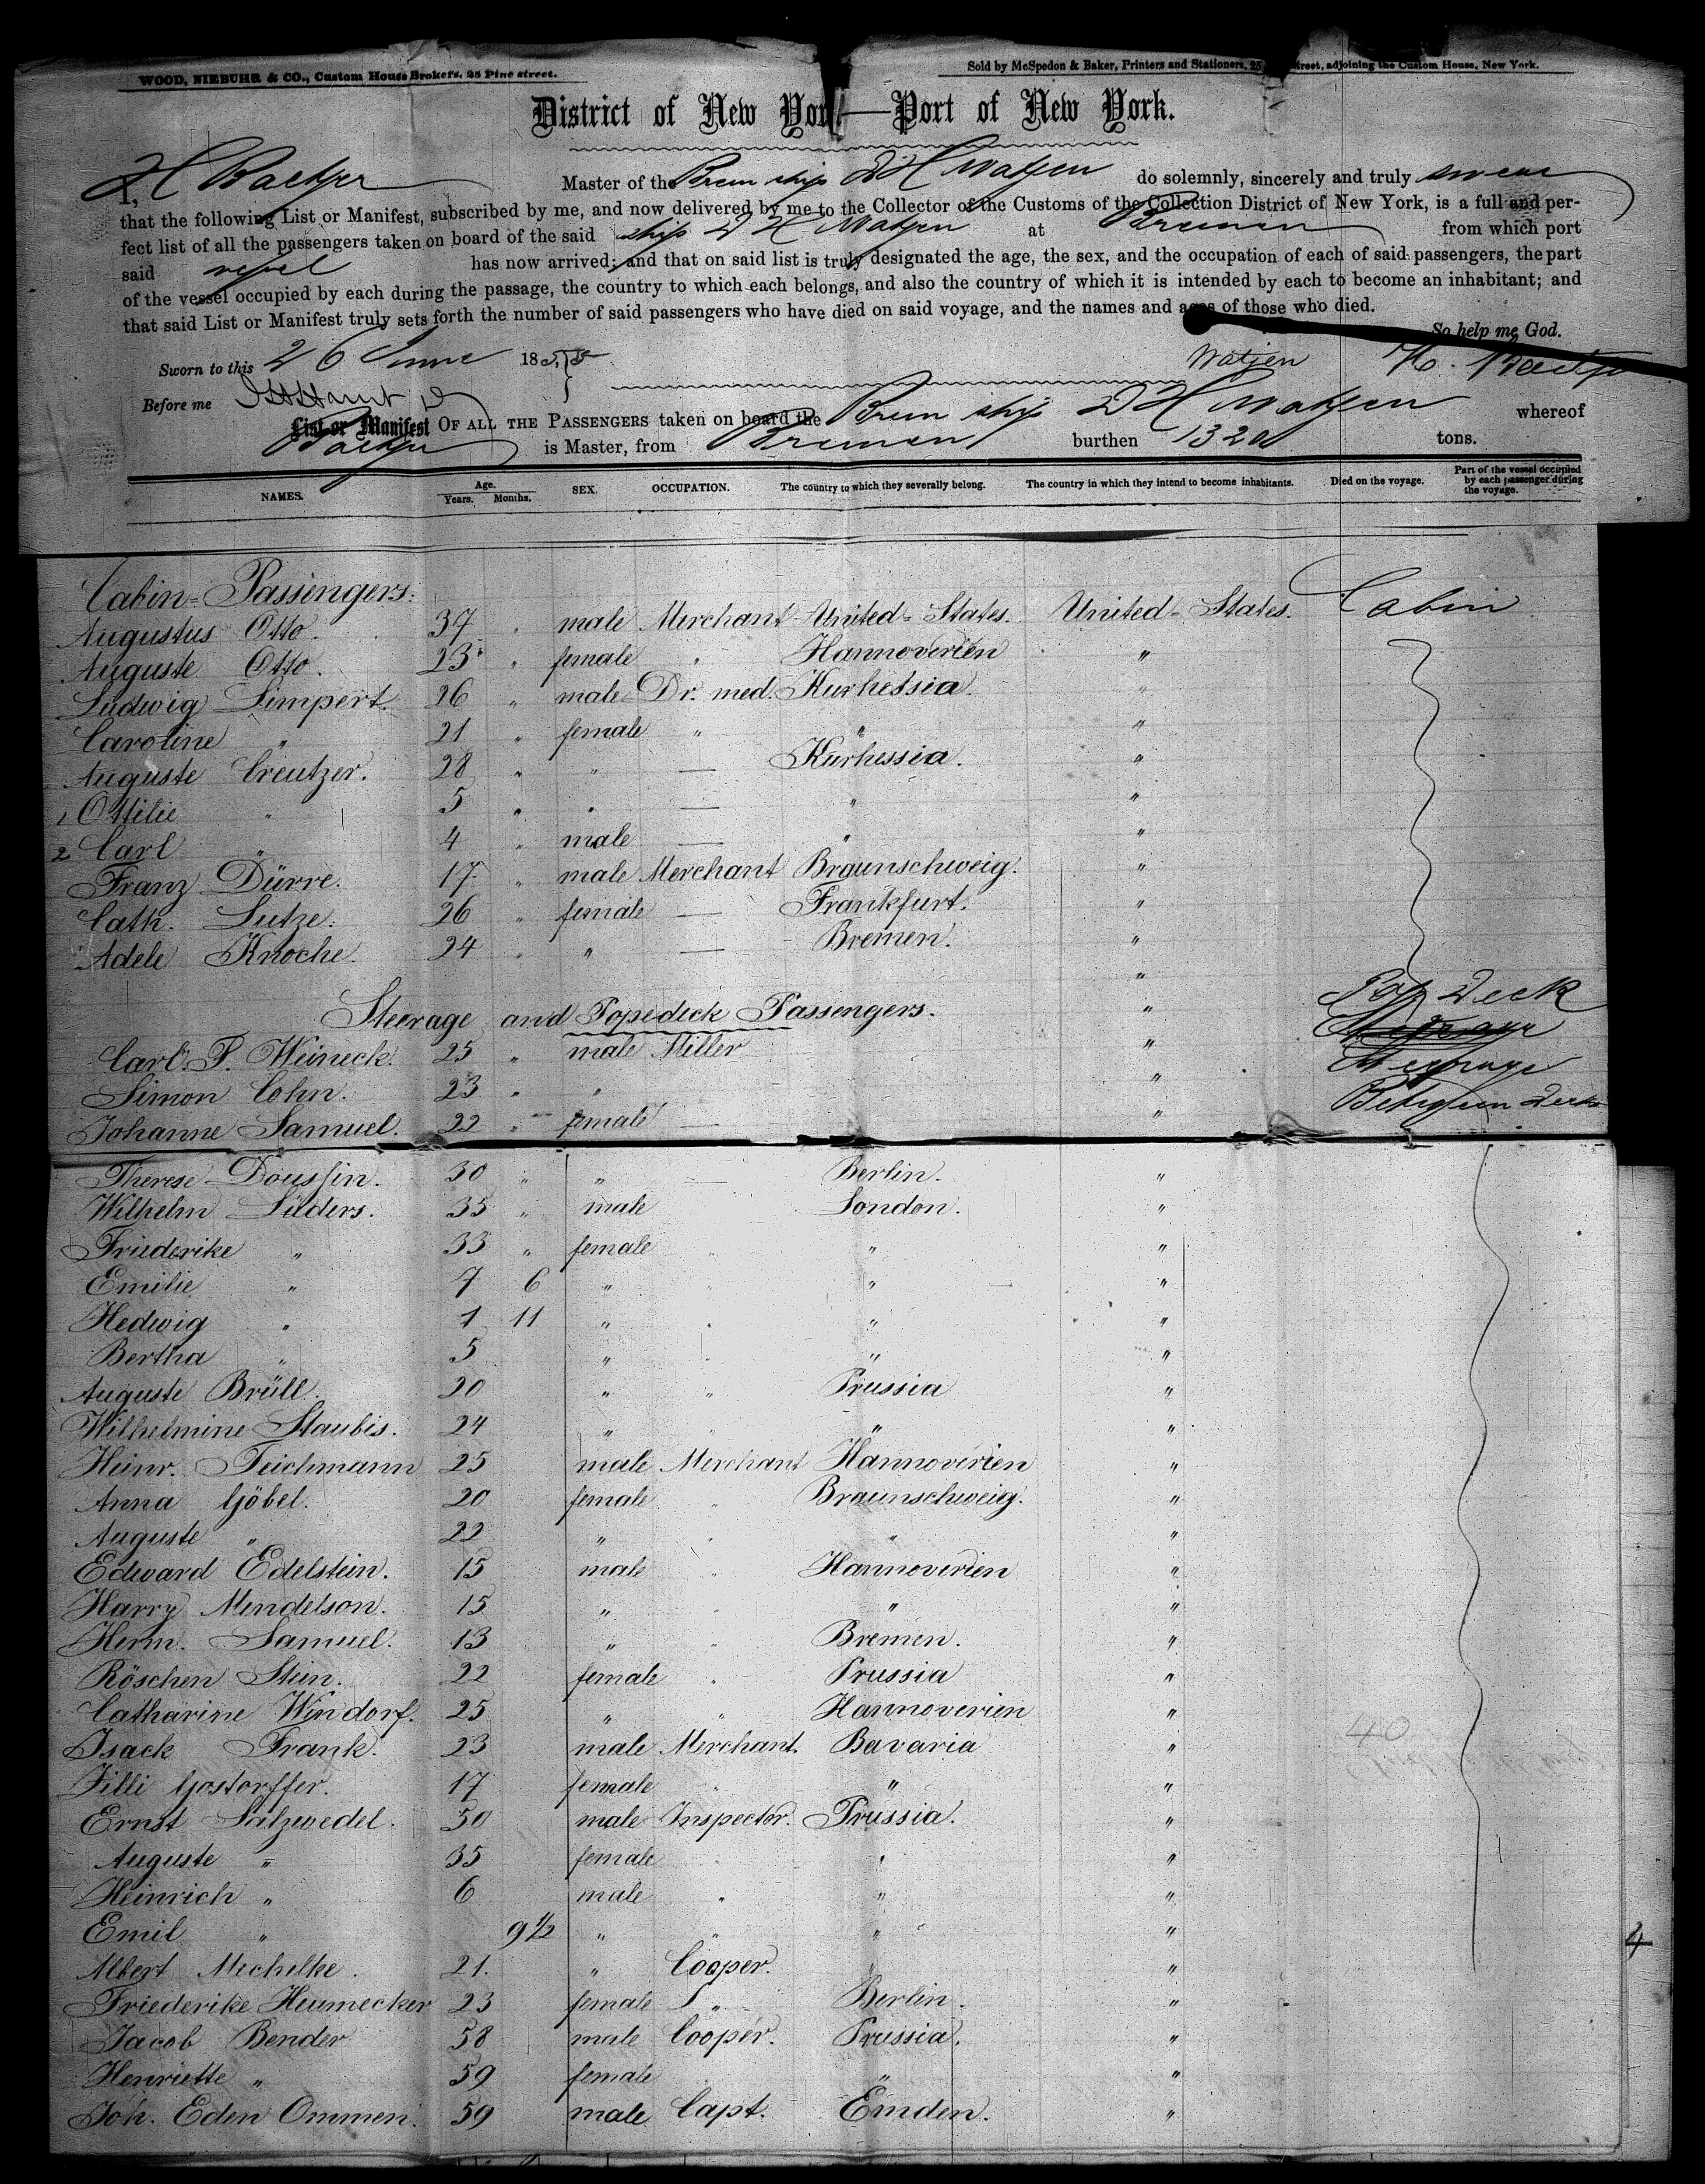 WOOD, NIEBUHR & CO., Custom House Brokers, 25 Pine street.
Sold by McSpedon & Baker, Printers and Stationers, 25 street, adjoining the Custom House, New York.
District of New York—Port of New York.
I, H Raetjer Master of the Brem ship D H Watjen do solemnly, sincerely and truly swear
that the following List or Manifest, subscribed by me, and now delivered by me to the Collector of the Customs of the Collection District of New York, is a full and per-
fect list of all the passengers taken on board of the said ship D H Watjen at Bremen from which port
said vessel has now arrived; and that on said list is truly designated the age, the sex, and the occupation of each of said passengers, the part
of the vessel occupied by each during the passage, the country to which each belongs, and also the country of which it is intended by each to become an inhabitant; and
that said List or Manifest truly sets forth the number of said passengers who have died on said voyage, and the names and ages of those who died.
So help me God.
Sworn to this 26 June 1855 Watjen H.
Before me
List or Manifest OF ALL THE PASSENGERS taken on board the Brem ship D H Watjen whereof
Raetjer is Master, from Bremen burthen 1320 tons.
NAMES. Age. Years. Months. SEX. OCCUPATION. The country to which they severally belong. The country in which they intend to become inhabitants. Died on the voyage. Part of the vessel occupied by each passenger during the voyage.
Cabin-Passengers:
Augustus Otto. 37 " male Merchant United-States. United-States. Cabin
Auguste Otto. 23 " female " Hannoverien "
Ludwig Limpert. 26 " male Dr. med. Kurhessia. "
Caroline " 21 " female " " "
Auguste Creutzer. 28 " " — Kurhessia. "
1 Ottilie " 5 " " — " "
2 Carl " 4 " male — " "
Franz Dürre. 17 " male Merchant Braunschweig. "
Cath. Lutze. 26 " female — Frankfurt. "
Adele Knoche. 24 " " — Bremen. "
" Pop Deck
Steerage and Popedeck Passengers. " Steerage
Carl. P. Weineck. 25 " male Miller " Steerage
Simon Cohn. 23 " " " Between Decks
Johanne Samuel. 22 " female — "
Therese Doussin. 30 " " — Berlin. "
Wilhelm Lüders. 35 " male London. "
Friederike " 33 " female " " "
Emilie " 7 6 " " " "
Hedwig " 1 11 " " " "
Bertha " 5 " " " "
Auguste Brüll. 20 " " Prussia "
Wilhelmine Staubis. 24 " " " "
Heinr. Teichmann 25 male Merchant Hannoverien "
Anna Göbel. 20 female " Braunschweig. "
Auguste " 22 " " " "
Edward Edelstein. 15 male " Hannoverien "
Harry Mendelson. 15 " " " "
Herm. Samuel. 13 " " Bremen. "
Röschen Stein. 22 female " Prussia "
Catharine Windorf. 25 " " Hannoverien "
Isack Frank. 23 male Merchant. Bavaria " 40
Lilli Gostorffer. 17 female " " "
Ernst Salzwedel. 50 male Inspector. Prussia. "
Auguste " 35 female " " "
Heinrich " 6 male " " "
Emil " 9 1/2 " " " " 4
Albert Mechelke. 21. " Cooper. "
Friederike Heumecker 23 female " Berlin. "
Jacob Bender 58 male Cooper. Prussia. "
Henriette " 59 female " "
Joh. Eden Ommen. 59 male Capt. Emden. "